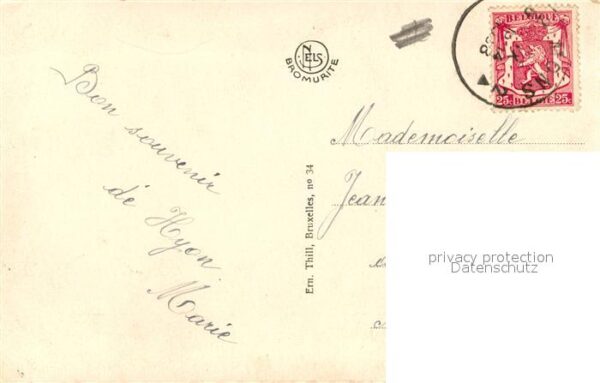 Bon souvenir
de Hyon
Marie
NELS
BROMURITE
Ern. Thill, Bruxelles, no 34
BELGIQUE
25c BELGIE 25c
Mademoiselle
Jean
privacy protection
Datenschutz